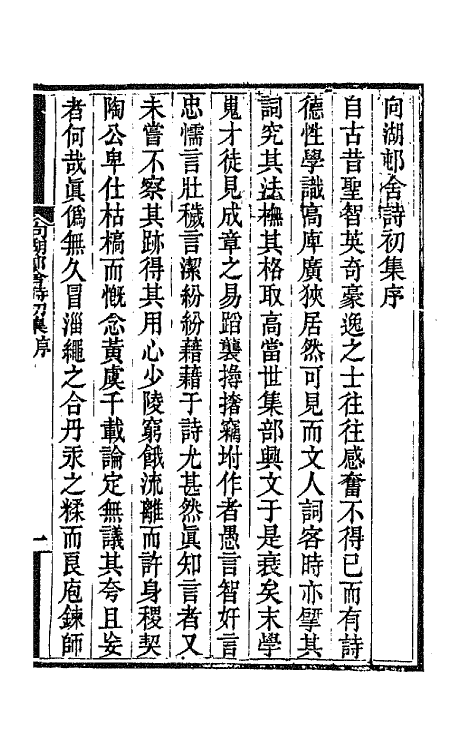 向湖邨舍詩初集序
自古昔聖智英奇豪逸之士往往感奮不得已而有詩
德性學識高庳廣狹居然可見而文人詞客時亦擥其
詞究其法橅其格取高當世集部興文于是衰矣末學
嵬才徒見成章之易蹈襲撏撦竊坿作者愚言智奸言
忠懦言壯穢言潔紛紛藉藉于詩尤甚然眞知言者又
未嘗不察其跡得其用心少陵窮餓流離而許身稷契
陶公卑仕枯槁而慨念黃虞千載論定無議其夸且妄
者何哉眞僞無久冒淄繩之合丹汞之糅而良庖鍊師
向湖邨舍詩初集序
一